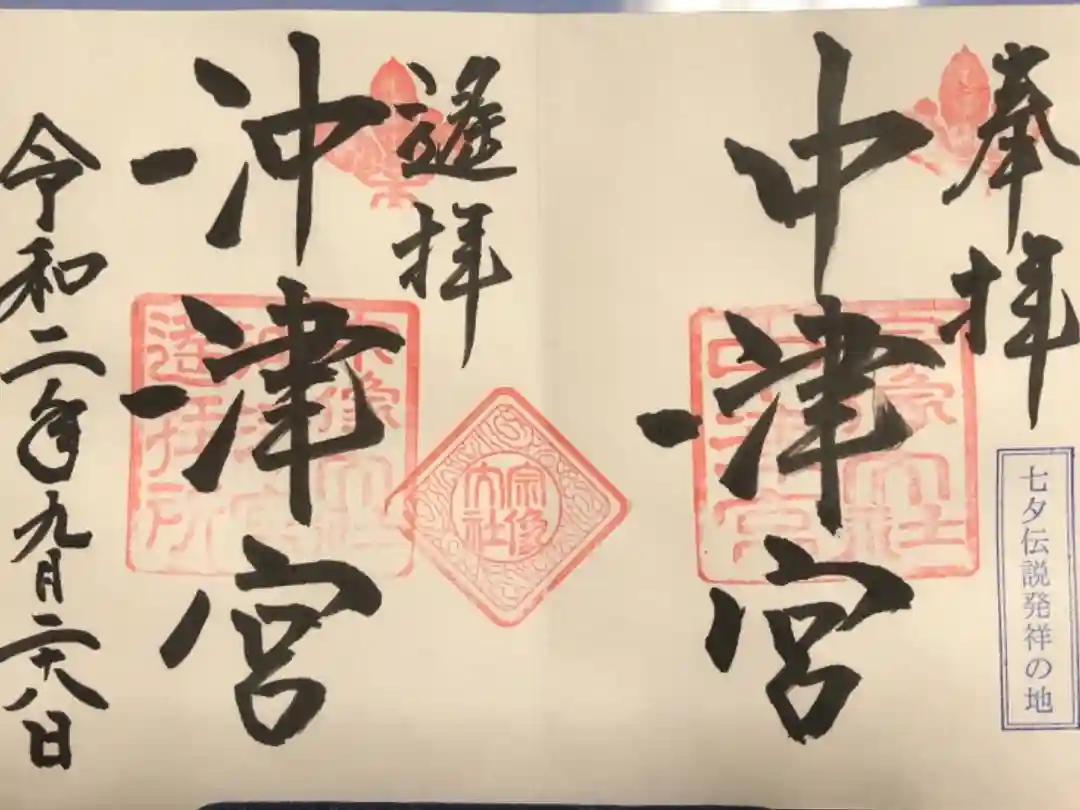 奉拝
七夕伝説発祥の地
中津宮
宗像大社
中津宮
宗像
大社
遙拝
沖津宮
宗像大社
沖津宮
遙拝所
令和二年九月二十八日